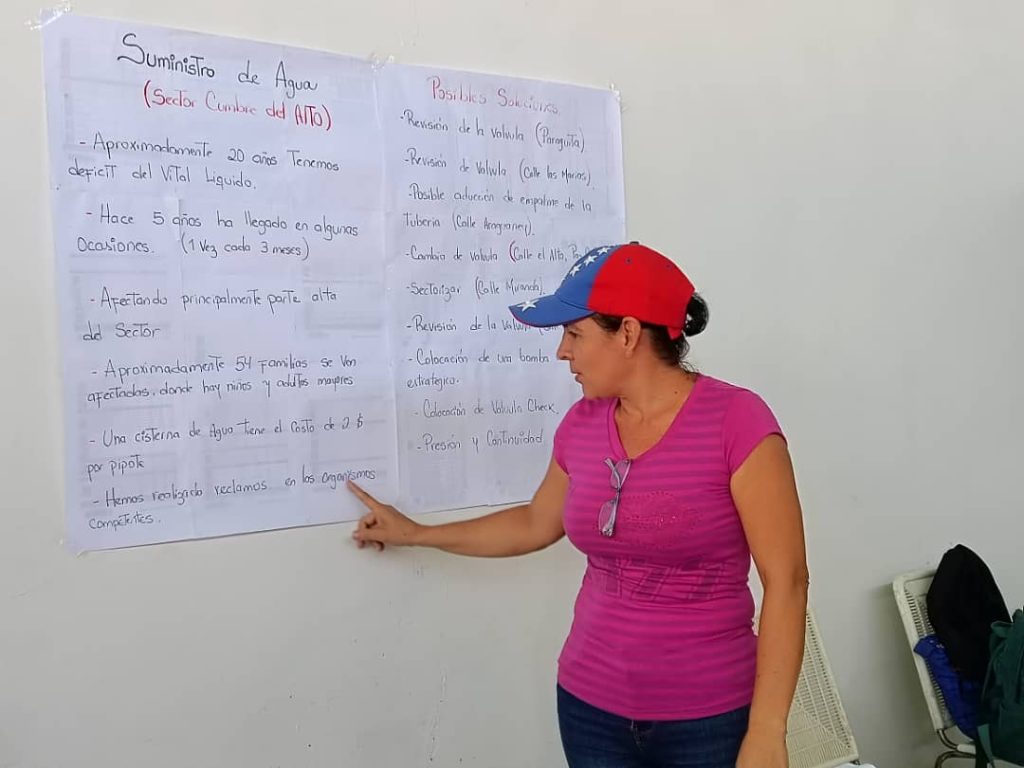 Suministro de Agua
(Sector Cumbre del Alto)
- Aproximadamente 20 años Tenemos
deficit del Vital Liquido.
- Hace 5 años ha llegado en algunas
Ocasiones. (1 Vez cada 3 meses)
- Afectando principalmente parte alta
del Sector
- Aproximadamente 54 Familias se ven
afectadas, donde hay niños y adultos mayores
- Una cisterna de Agua tiene el Costo de 2 $
por pipote
- Hemos realizado reclamos en los organismos
Competentes.
Posibles Soluciones
-Revisión de la Valvula (Paraguita)
-Revisión de Valvula (Calle las Marias)
-Posible aducción de empalme de la
Tuberia (Calle
-Cambio de Valvula (Calle el Alto,
-Sectorizar (Calle Miranda)
- Revisión de la Valvula
- Colocación de una bomba
estrategico.
- Colocación de Valvula Check.
- Presión y Continuidad